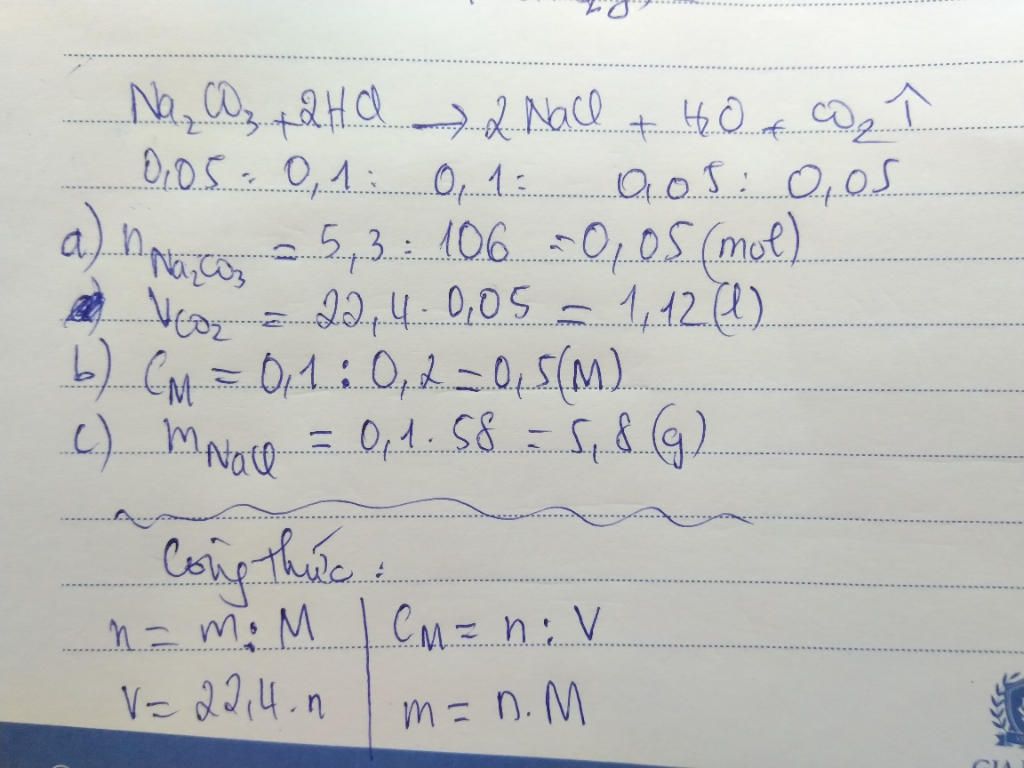 Na₂CO₃ + 2HCl → 2NaCl + H₂O + CO₂ ↑
0,05 : 0,1 : 0,1 : 0,05 : 0,05
a) n Na₂CO₃ = 5,3 : 106 = 0,05 (mol)
V CO₂ = 22,4 . 0,05 = 1,12 (l)
b) C_M = 0,1 : 0,2 = 0,5 (M)
c) m NaCl = 0,1 . 58 = 5,8 (g)
Công thức :
n = m : M | C_M = n : V
V = 22,4 . n | m = n . M